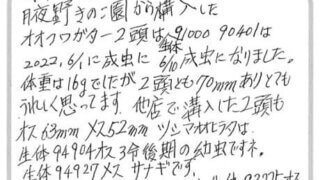 月夜野きのこ園から購入した
オオクワガタ2頭は 91000 90401は
2022,6/1に成虫に 6/10成虫になりました。
体重は16gでしたが2頭とも70mmありとても
うれしく思ってます。他店で購入した2頭も
オス63mm メス52mm ツシマオオヒラタは
生体94904オス3令後期の幼虫です。
生体94927メス サナギです。